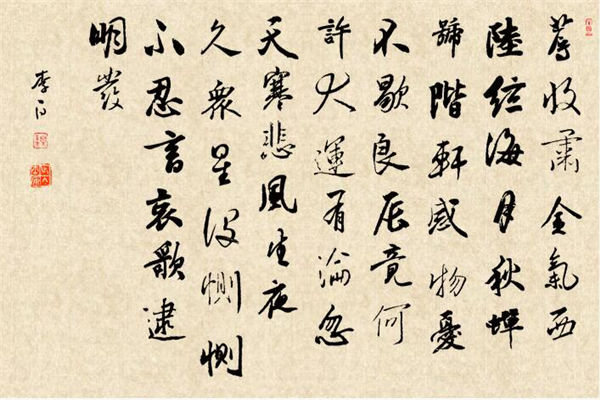 蓐收肅金氣西
陸絃海月秋蟬
號階軒感物憂
不歇良辰竟何
許大運有淪忽
天寒悲風生夜
久衆星没惻惻
不忍言哀歌逮
明發
李白